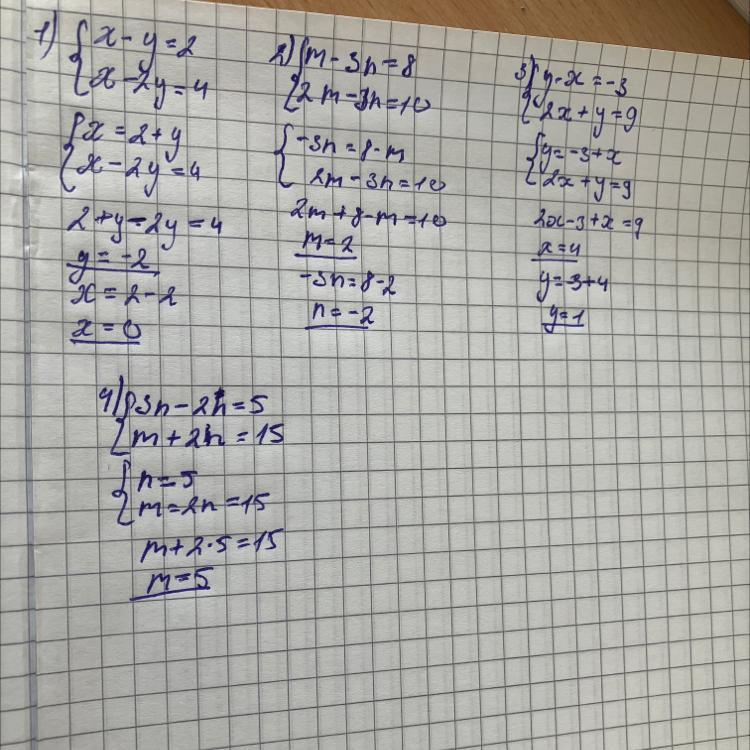 1) { x - y = 2
x - 2y = 4
{ x = 2 + y
x - 2y = 4
2 + y - 2y = 4
y = -2
x = 2 - 2
x = 0
2) { m - 3n = 8
2m - 3n = 10
{ -3n = 8 - m
2m - 3n = 10
2m + 8 - m = 10
m = 2
-3n = 8 - 2
n = -2
3) { y - x = -3
2x + y = 9
{ y = -3 + x
2x + y = 9
2x - 3 + x = 9
x = 4
y = -3 + 4
y = 1
4) { 3n - 2n = 5
m + 2n = 15
{ n = 5
m = 2n = 15
m + 2 · 5 = 15
m = 5